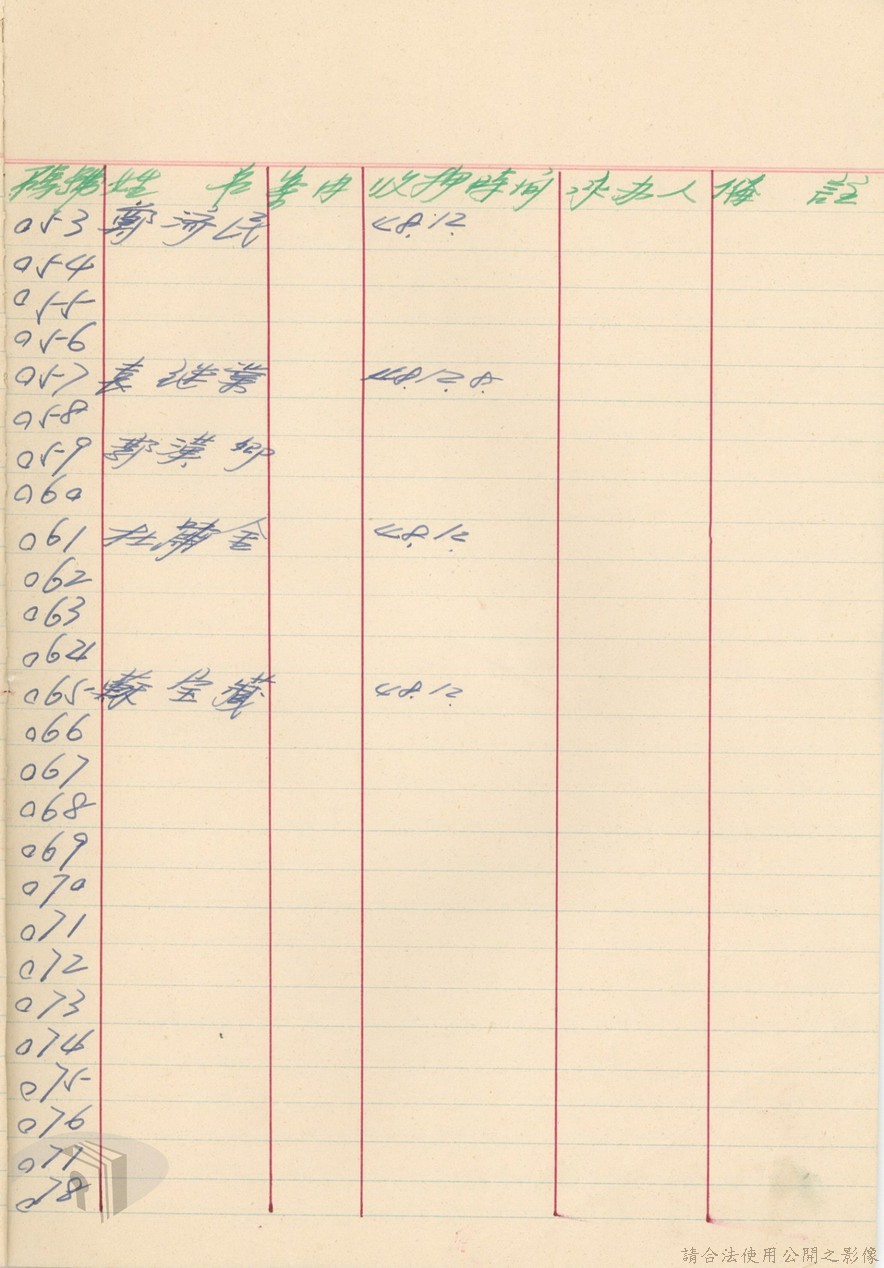 號 姓 名 案由 收押時間 承办人 備 註
053 鄭濟民 48.12.
054
055
056
057 袁继業 48.12.8.
058
059 郭漢卿
060
061 杜蘭金 48.12.
062
063
064
065 蘇金藏 48.12.
066
067
068
069
070
071
072
073
074
075
076
077
078
請合法使用公開之影像